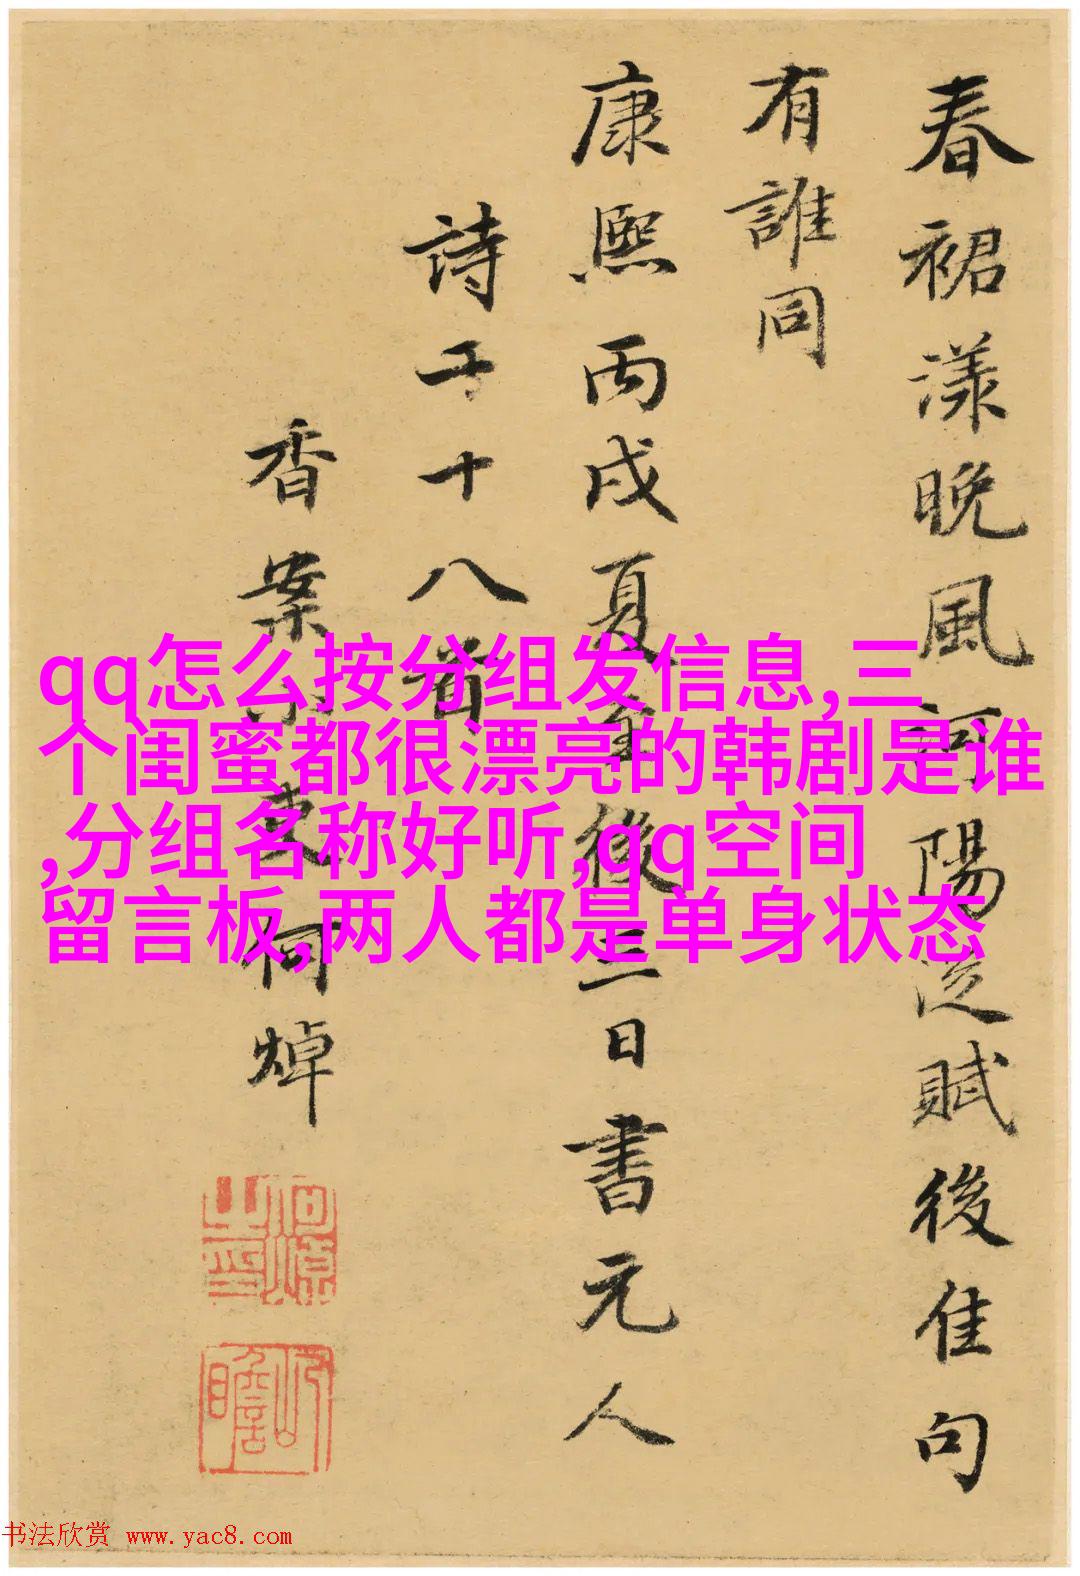 春裙漾晚風河陽賦後佳句
有誰同
康熙丙戌夏至後三日書元人
詩十八首
香案小吏何焯
何焯之印
屺瞻
qq怎么按分组发信息,三
个闺蜜都很漂亮的韩剧是谁
,分组名称好听,qq空间
留言板,两人都是单身状态
书法欣赏 www.yac8.com